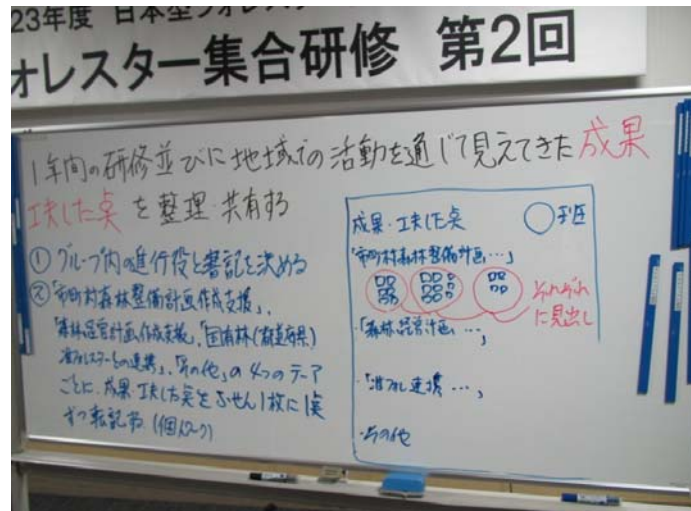 23年度 日本型フォレス
ォレスター集合研修 第2回
1年間の研修並びに地域での活動を通じて見えてきた成果
工夫した点を整理・共有する
① グループ内の進行役と書記を決める
②「市町村森林整備計画作成支援」、
「森林経営計画作成支援」、「国有林(都道府県)
准フォレスターとの連携」、「その他」の4つのテーマ
ごとに、成果・工夫した点をふせん1枚に1点
ずつ転記 (個人ワーク)
成果・工夫した点 ○班
「市町村森林整備計画…」
それぞれ
に見出し
・「森林経営計画…」
・「准フォレ連携…」
・その他